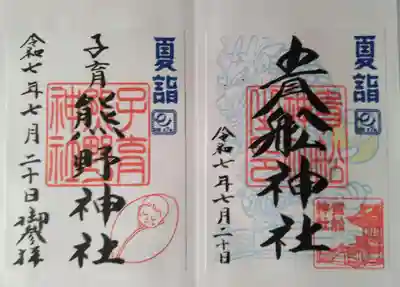 夏詣
子育
熊野神社
子育
熊野
神社
令和七年七月二十日
御参拝
夏詣
貴船神社
令和七年七月二十日